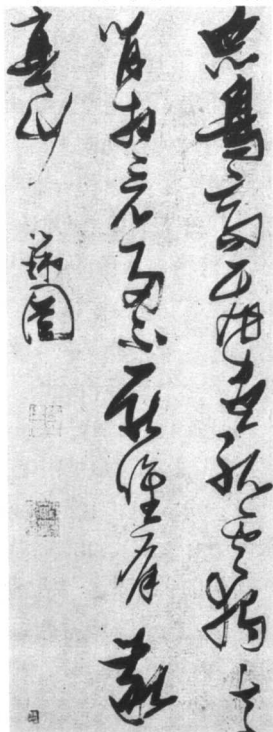 眾鳥高飛盡孤雲獨去
閒相看兩不厭惟有敬
亭山
瑞圖